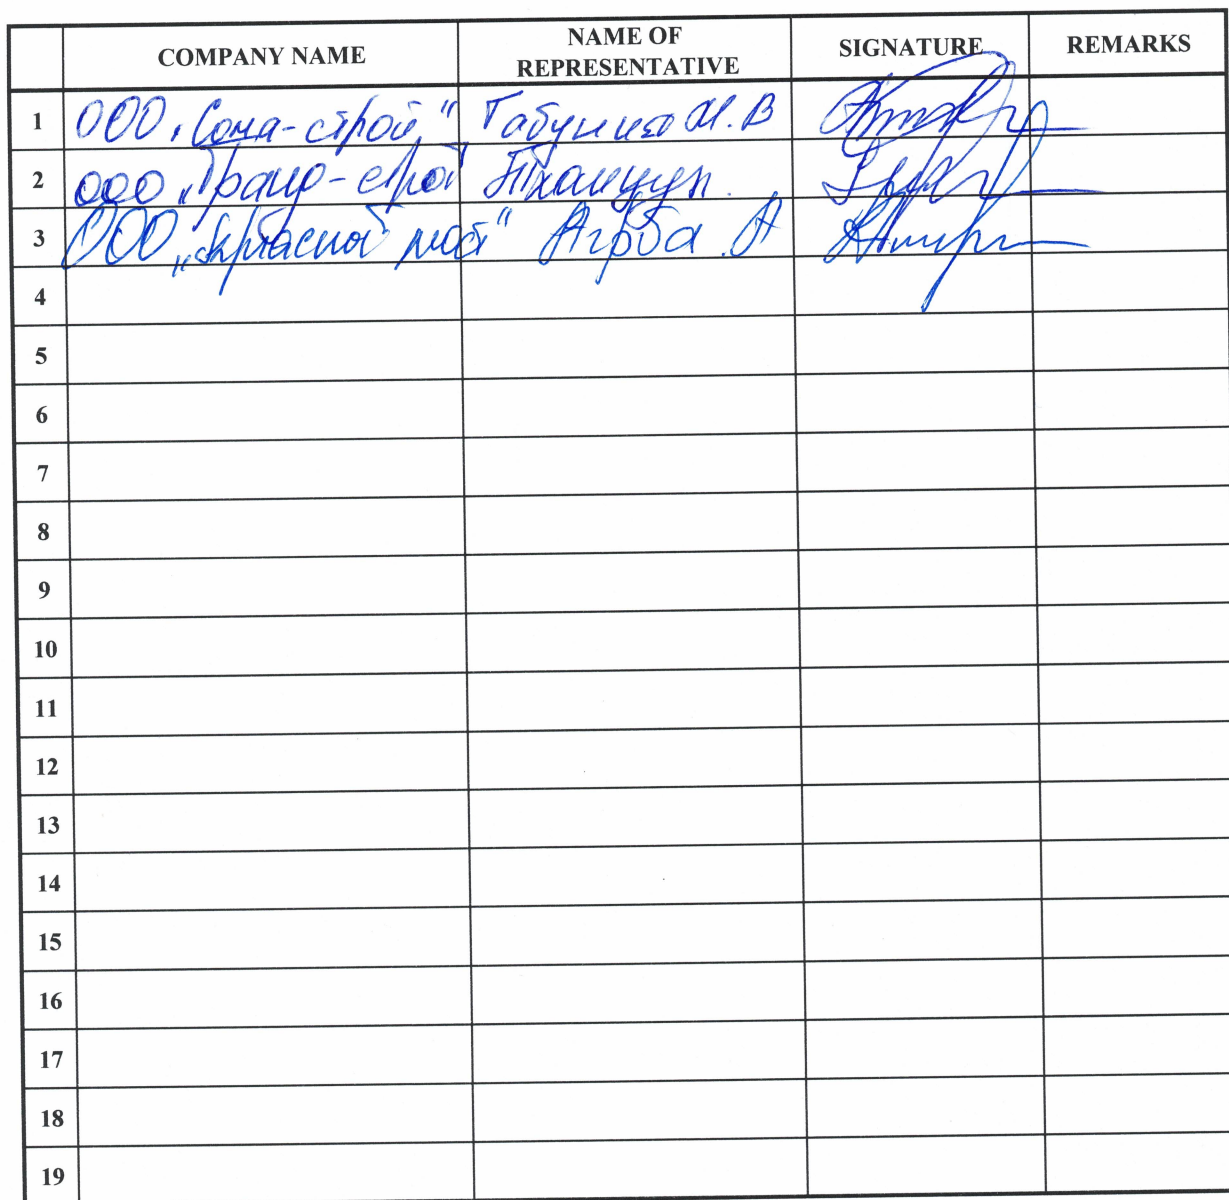 COMPANY NAME NAME OF REPRESENTATIVE SIGNATURE REMARKS
1 ООО „Сома-строй" Табунико М.В
2 ООО -строй
3 ООО „ мост" Агрба А
4
5
6
7
8
9
10
11
12
13
14
15
16
17
18
19